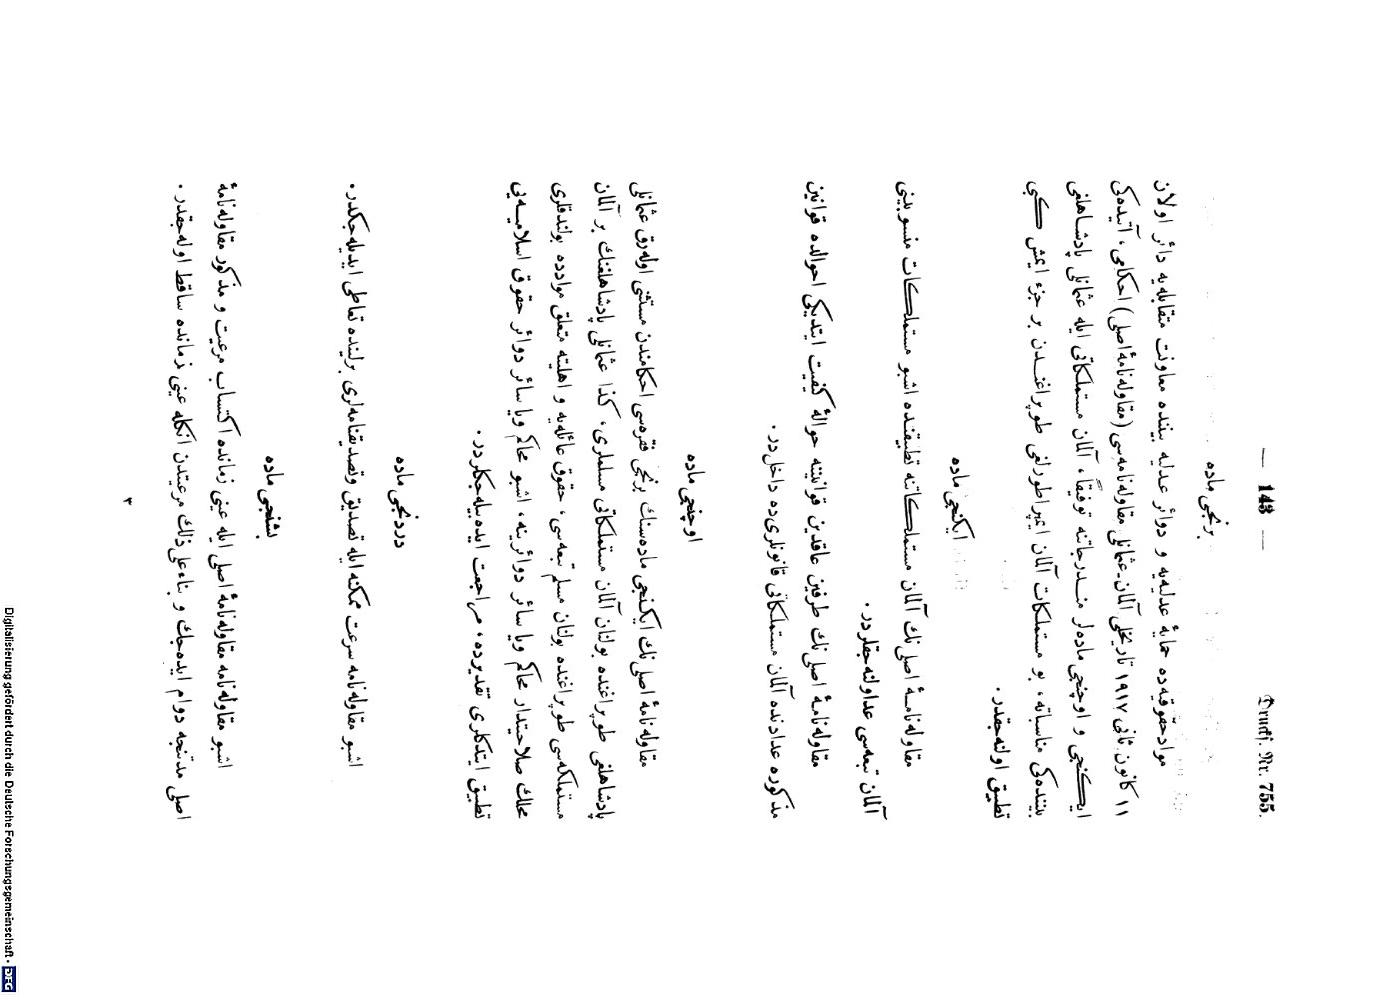 — 143 —
Drucks. Nr. 755.
برنجى ماده
مواد حقوقيه‌ده حمايهٔ عدليه‌يه و دوائر عدليه بيننده معاونت متقابله‌يه دائر اولان
١١ كانون ثانى ١٩١٧ تاريخلى آلمان ـ عثمانلى مقاوله‌نامه‌سى (مقاوله‌نامهٔ اصلى) احكامى، آتيده‌كى
ايكنجى و اوچنجى ماده‌لر مندرجاتنه توفيقاً، آلمان مستملكاتى ايله عثمانلى پادشاهلغى
بيننده‌كى مناسباته، بو مستملكات آلمان ايمپراطورلغى طوپراغندن بر جزء ايمش كبى
تطبيق اولنه‌جقدر.
ايكنجى ماده
مقاوله‌نامهٔ اصلى‌نك آلمان مستملكاتنه تطبيقنده اشبو مستملكات منسوبينى
آلمان تبعه‌سى عد اولنه‌جقلردر.
مقاوله‌نامهٔ اصلى‌نك طرفين عاقدين قوانيننه حوالهٔ كيفيت ايتديكى احوالده قوانين
مذكوره عدادنده آلمان مستملكاتى قانونلرى‌ده داخل‌در.
اوچنجى ماده
مقاوله‌نامهٔ اصلى‌نك ايكنجى ماده‌سنك برنجى فقره‌سى احكامندن مستثنى اوله‌رق عثمانلى
پادشاهلغى طوپراغنده بولنان آلمان مستملكاتى مسلملرى، كذا عثمانلى پادشاهلغنك بر آلمان
مستملكه‌سى طوپراغنده بولنان مسلم تبعه‌سى، حقوق عائله‌يه و اهليته متعلق موادده بولندقلرى
محلك صلاحيتدار محاكم ويا سائر دوائرينه، اشبو محاكم ويا سائر دوائر حقوق اسلاميه‌يى
تطبيق ايتدكلرى تقديرده، مراجعت ايده‌بيله‌جكلردر.
دردنجى ماده
اشبو مقاوله‌نامه سرعت ممكنه ايله تصديق وتصديقنامه‌لرى برلينده تعاطى ايديله‌جكدر.
بشنجى ماده
اشبو مقاوله‌نامه مقاوله‌نامهٔ اصلى ايله عينى زمانده اكتساب مرعيت و مذكور مقاوله‌نامهٔ
اصلى مدتنجه دوام ايده‌جك و بناءً على ذلك مرعيتدن انكله عينى زمانده ساقط اوله‌جقدر.
٣
Digitalisierung gefördert durch die Deutsche Forschungsgemeinschaft - DFG